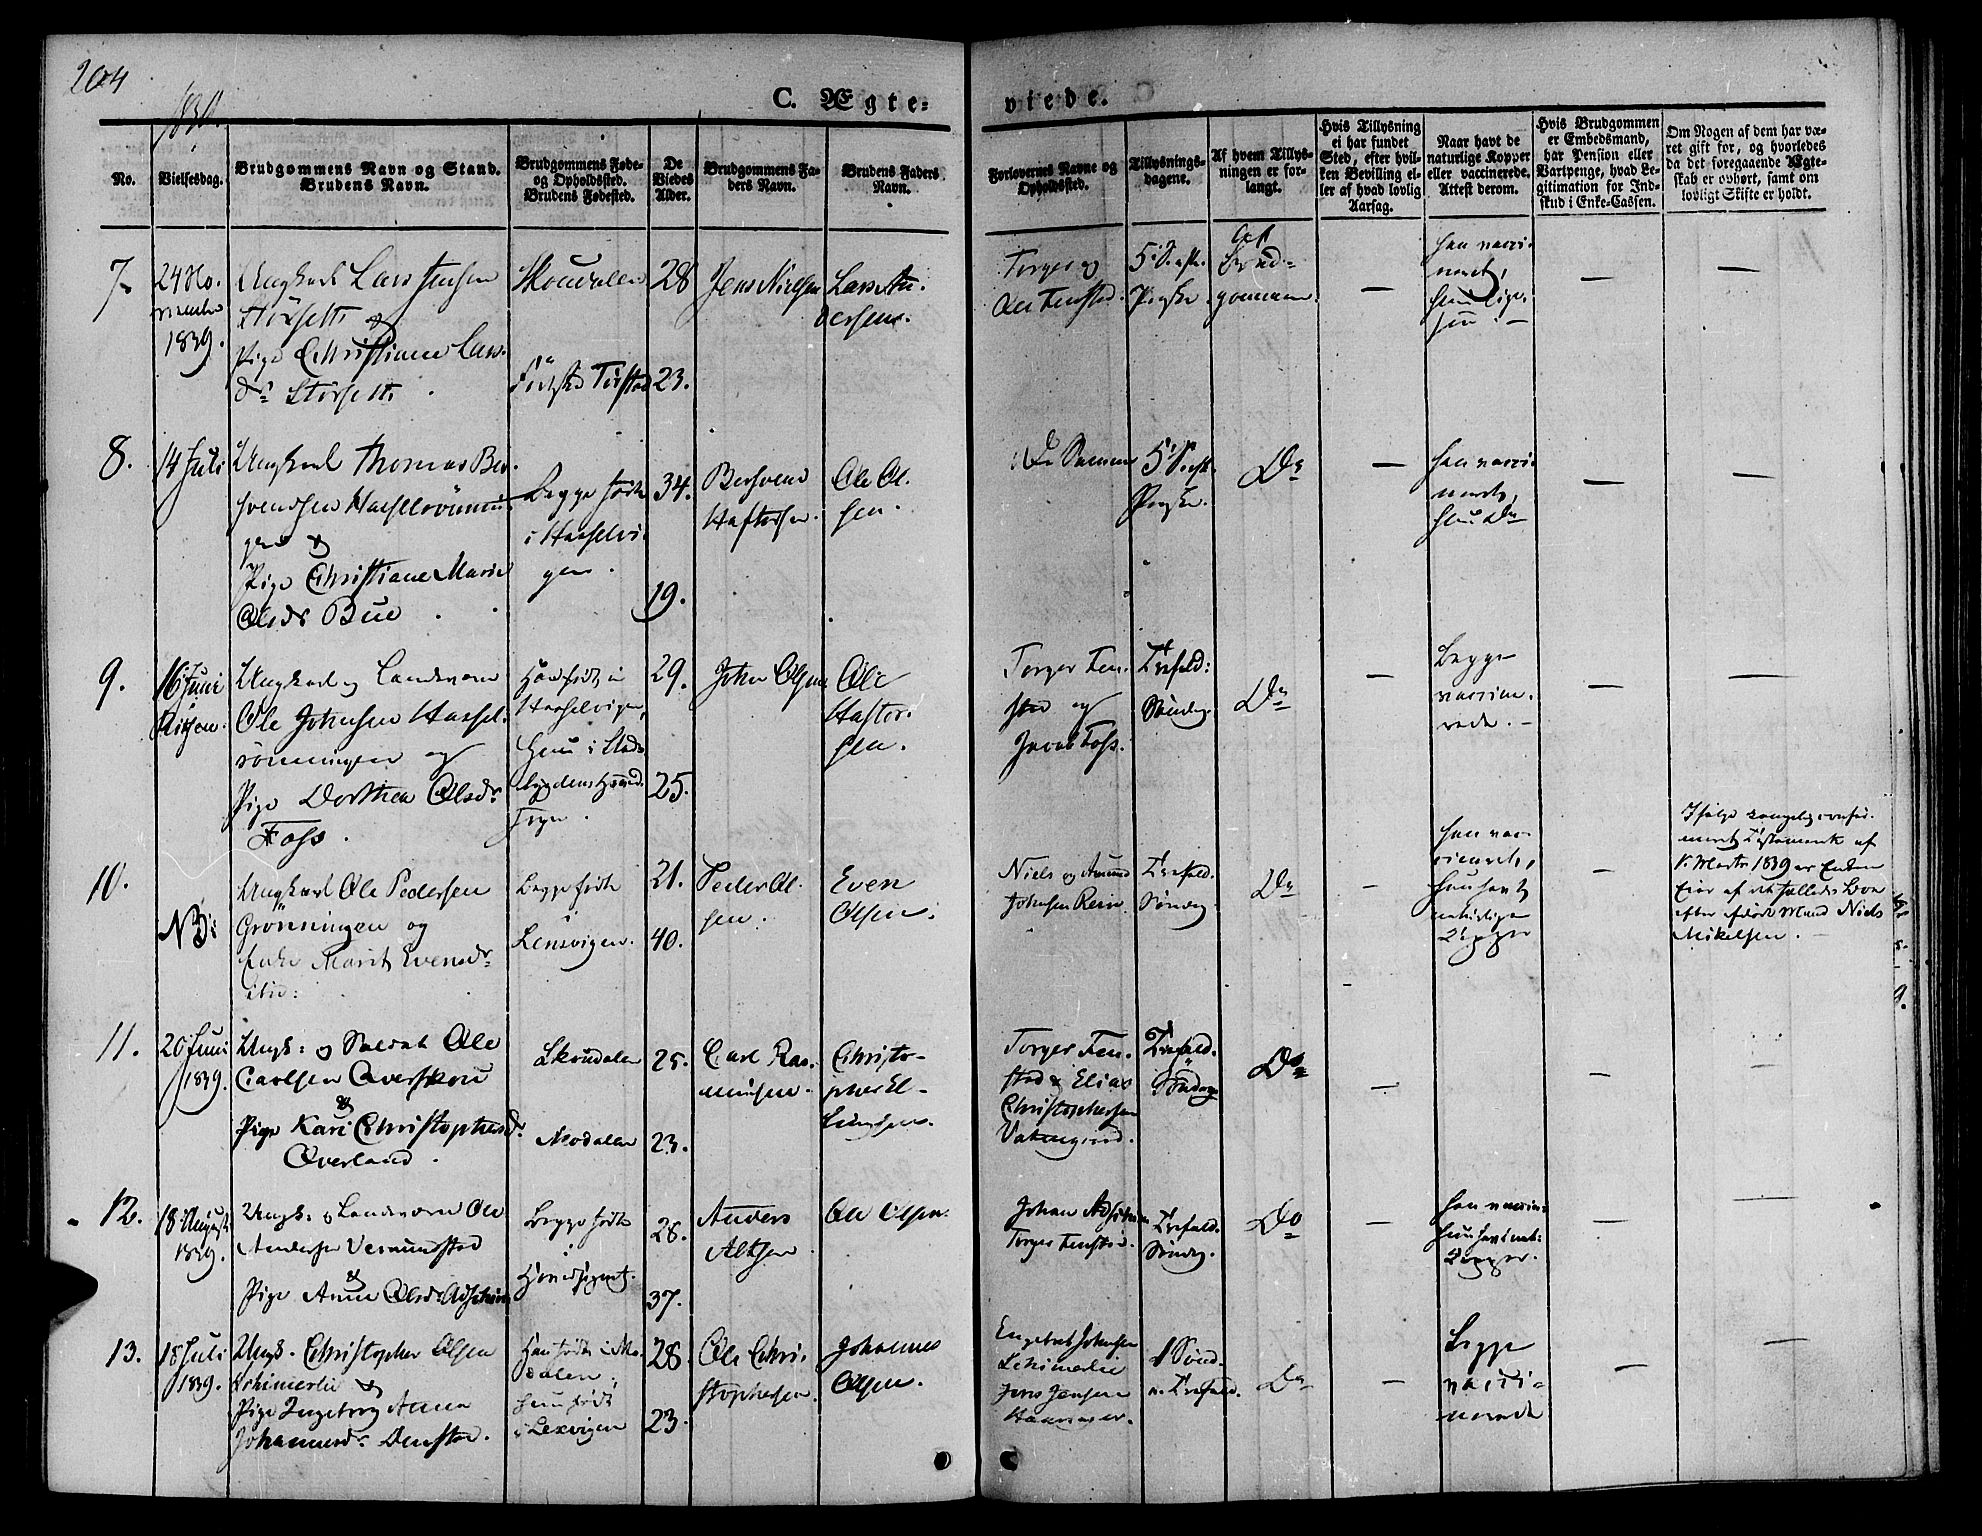 204
1839.
C. Ægte-
viede.
No.
Vielsesdag.
Brudgommens Navn og Stand.
Brudens Navn.
Brudgommens Føde-
og Opholdssted.
Brudens Fødested.
De
Viedes
Alder.
Brudgommens Fa-
ders Navn.
Brudens Faders
Navn.
Forlovernes Navne og
Opholdssted.
Tillysnings-
dagene.
Af hvem Tillys-
ningen er for-
langt.
Hvis Tillysning
ei har fundet
Sted, efter hvil-
ken Bevilling el-
ler af hvad lovlig
Aarsag.
Naar havt de
naturlige Kopper
eller vaccinerede.
Attest derom.
Hvis Brudgommen
er Embedsmand,
har Pension eller
Vartpenge, hvad Le-
gitimation for Ind-
skud i Enke-Cassen.
Om Nogen af dem har væ-
ret gift for, og hvorledes
da det foregaaende Ægte-
skab er ophørt, samt om
lovligt Skifte er holdt.
7.
24 No-
vember
1839.
Ungkarl Lars Jensen
Størseth
&
Pige Christiane Lars-
dr. Størseth.
Skoudalen
Fødested
28
23.
Jens Nielsen
Lars An-
dersen.
Torger og
Ole Fenstad.
5 S. efter
Pinse.
Af
Brud-
gommen.
—
han vacci-
neret,
hun lige-
saa. —
—
—
8.
14 Juli
Ungkarl Thomas Ber-
svendsen Hasselrønnin-
gen &
Pige Christiane Marie
Olsdr Bue.
Begge født
i Hasselvi-
gen.
34.
19.
Bersvend
Haftorsen.
Ole Ol-
sen.
De Samme
5 S. eft.
Pinse.
Do
—
han vacci-
neret,
hun Do
—
—
9.
16 Juni
Ungkarl og Landværn
Ole Johnsen Hassel-
rønningen og
Pige Dorthea Olsdr
Foss.
Han født i
Hasselvigen,
Hun i Stads-
bygdens Hoved-
sogn.
29.
25.
John Olsen
Ole
Haftor-
sen.
Torger Fen-
stad og
Jacob Foss.
Trefold:
Søndag.
Do
—
Begge
vaccine-
rede. —
—
—
10.
NB:
Ungkarl Ole Pedersen
Grønningen og
Enke Marit Evensdr
ibid:
Begge født
i
Lensvigen.
21.
40.
Peder Ol-
sen.
Even
Olsen.
Niels og Amund
Johnsen Rein.
Trefold.
Søndag.
Do
—
han vac-
cineret,
hun havt
naturlige
Kopper
—
Ifølge kongelig confir-
meret Testamente af
Marts 1839 er Enken
Eier af det fælleds Boe
efter afdøde Mand Niels
Mikelsen. —
11.
20 Juni
1839.
Ungk: og Soldat Ole
Carlsen Overskou
&
Pige Kari Christophersdr.
Overland.
Skoudalen
Modalen
25.
23.
Carl Ras-
mussen.
Christo-
pher El-
lingsen.
Torger Fen-
stad & Elias
Christophersen
Trefold.
Søndag
Do
—
—
—
12.
18 August
1839.
Ungk: og Landværn Ole
Andersen Vermundstad
&
Pige Anne Olsdr
Begge født
i
Hovedsognet.
28.
37.
Anders
Ole Olsen.
Johan
Torger Fenstad.
Trefold.
Søndag.
Do
—
han vaccin:
hun havt nat:
Kopper.
—
—
13.
18 Juli
1839.
Ungk. Christopher Olsen
Schimerlie &
Pige Ingeborg Anna
Johannesdr. Denstad.
Han født i Mo-
dalen,
hun født
i Lexvigen
28
23.
Ole Chri-
stophersen.
Johannes
Olsen.
Engebret Johnsen
Schimerlie
Jens Jensen
1 Sønd.
e. Trefold.
Do
—
Begge
vacci-
nerede
—
—